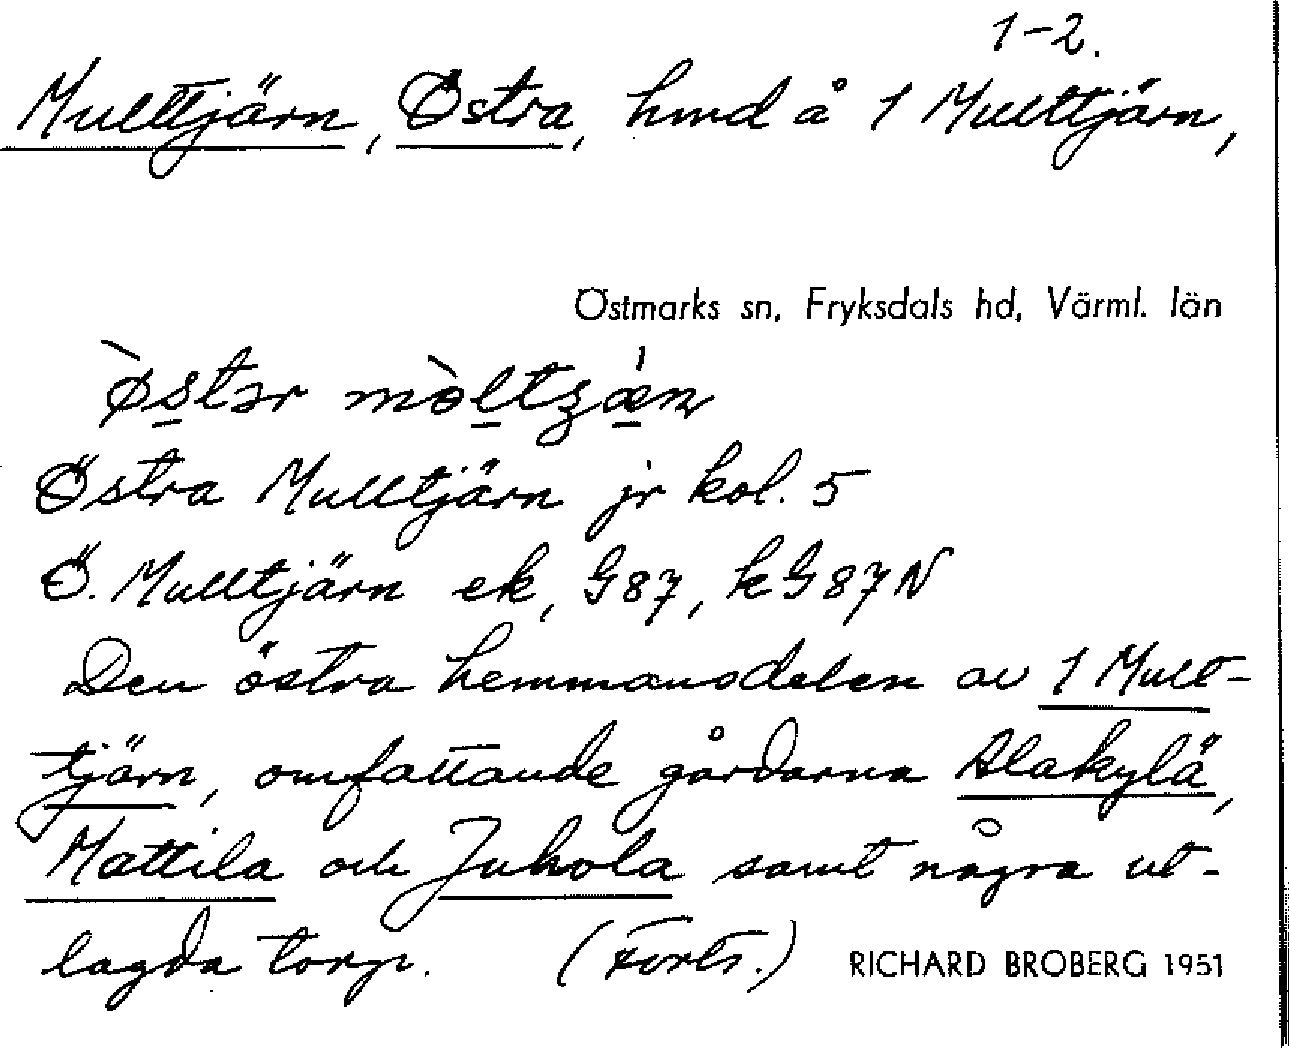 1-2.
Mulltjärn, Östra, hmd å 1 Mulltjärn,
Östmarks sn, Fryksdals hd, Värml. län
ø̀stər mòltʒǽn
Östra Mulltjärn jr kol. 5
Ö. Mulltjärn ek, G87, kG87N
Den östra hemmansdelen av 1 Mull-
tjärn, omfattande gårdarna Alakylä,
Mattila och Juhola samt några ut-
lagda torp. (Forts.) RICHARD BROBERG 1951